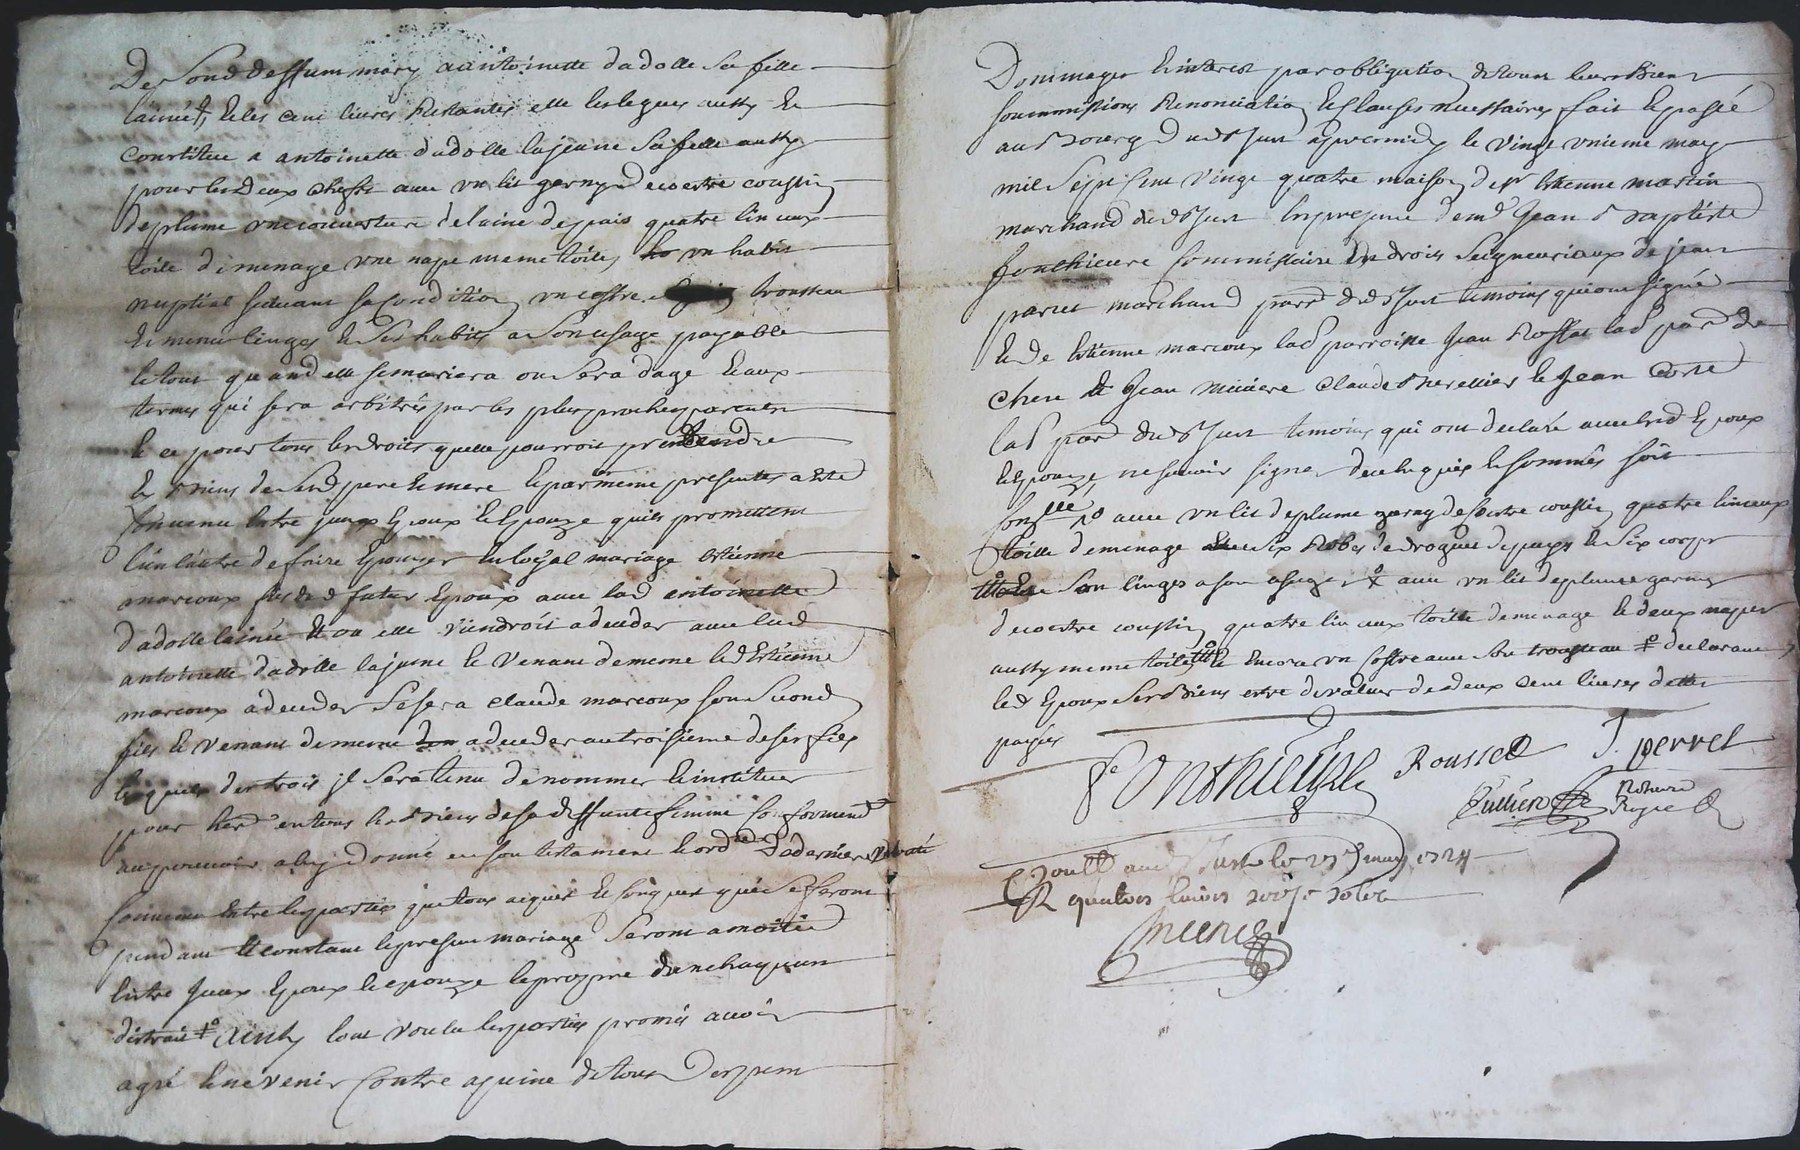 De Sond deffum mary a antoinette dadolle sa fille
lainée, & les cent livres Restantes elle les legues aussy &
constitue a antoinette dadolle la jeune sa fille aussy
pour les deux chefs avec un lit garny de coestre coussin
de plume une couverture de laine depais quatre linceux
toile de menage une nape meme toile, un habit
nuptial suivant sa Condition un cofre trousseau
& menu linges & ses habits a son usage payable
le tout quand elle se mariera ou sera dage & aux
termes qui sera arbitrés par les plus proches parents
& ce pour tous les droits quelle pourroit prendre
es biens de sesd pere & mere & par meme presentes a esté
Convenu entre jceux Epoux & Epouze quils promettent
lun lautre de faire Epouzer en loyal mariage estienne
marcoux fils dud futur Epoux avec lad antoinette
dadolle lainée & ou elle viendroit a deceder avec lad
antoinette dadolle la jeune & venant de meme led Estienne
marcoux a deceder se sera claude marcoux son second
fils & venant de meme a deceder au troisieme de ses fils
lequel des trois jl sera tenu de nommer & instituer
pour herd en tous les biens de sa deffunte femme Conformemt
au pouvoir a luy donné en son testament & ord de derniere volonté
Convenu entre les parties que tous aquis & conquis qui se feront
pendant & constant le present mariage seront a moitié
entre jceux Epoux & epouze le propre dun chaquun
distrait Ainsy lont voulu les parties promis avoir
agré & ne venir Contre a peine de tous despens
Dommages & interest par obligation de tous leurs Biens
soummissions Renonciation & Clauses necessaires fait & passé
au Bourg dud St Just apres midy le vingt unieme may
mil Sept Cent vingt quatre maison de sr Estienne martin
marchand dud St Just En presence de me Jean Baptiste
fonthieure Commissaire En droits Seigneuriaux de jean
perret marchand parr dud St Just temoins qui ont signé
& de Estienne marcoux lad parroisse Jean Rossat lad parr de
chere & Jean miniere claude & Jean
lad parr dud St Just temoins qui ont declaré avec lesd Epoux
& Epouze ne scavoir signer de ce enquis & sommés soit
Conllé avec un lit de plume garny de coestre coussin quatre linceux
toille de menage six Robes de drogues de pays & six corps
& son linges a son usage avec un lit de plume garny
de coestre coussin quatre linceux toille de menage & deux napes
aussy meme toille & Encore un Coffre avec son trousseau declarant
led Epoux ses Biens estre de valeur de deux cent livres dettes
payées
Fonthieure Rousset J. perret
Jullien Notaire
Royal
Conllé au St Just le 27e may 1724
R quatres livres